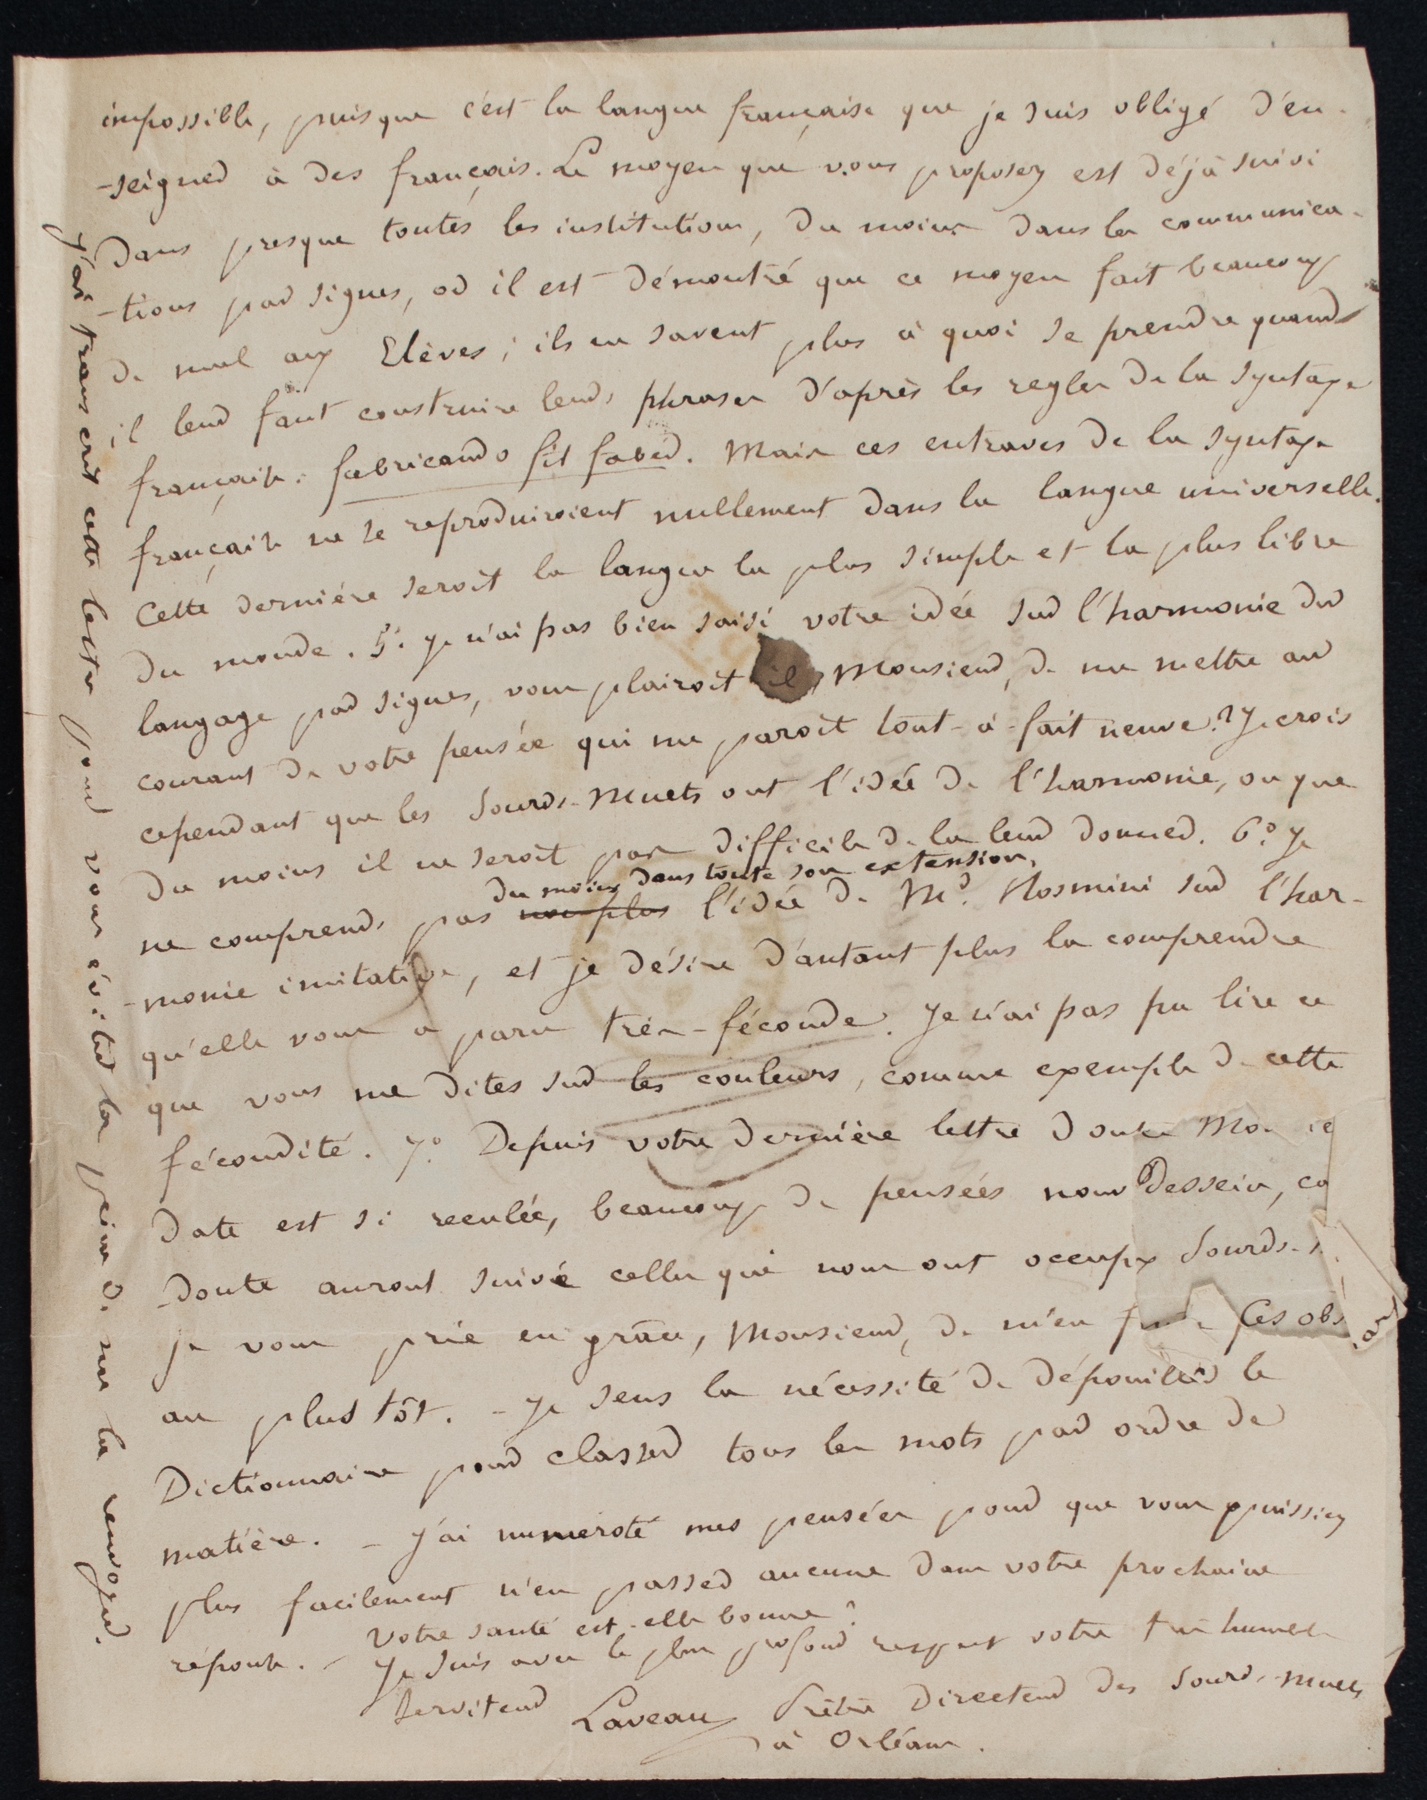 impossible, puisque c'est la langue française que je suis obligé d'en-
-seigner à des français. Le moyen que vous proposez est déjà suivi
dans presque toutes les institutions, du moins dans les communica-
-tions par signes, où il est démontré que ce moyen fait beaucoup
de mal aux Elèves ; ils ne savent plus à quoi se prendre quand
il leur faut construire leurs phrases d'après les regles de la syntaxe
française. fabricando fit faber. Mais ces entraves de la syntaxe
française ne se reproduiroient nullement dans la langue universelle.
Cette dernière seroit la langue la plus simple et la plus libre
du monde. 5°. je n'ai pas bien saisi votre idée sur l'harmonie du
langage par signes, vous plairoit il, Monsieur, de me mettre au
courant de votre pensée qui me paroit tout-à-fait neuve ? Je crois
cependant que les Sourds-Muets ont l'idée de l'harmonie, ou que
du moins il ne seroit pas difficile de la leur donner. 6° je
du moins dans toute son extension,
ne comprends pas non plus l'idée de Mr. Rosmini sur l'har-
-monie imitative, et je désire d'autant plus la comprendre
qu'elle vous a paru très-féconde. Je n'ai pas pu lire ce
que vous me dites sur les couleurs, comme exemple de cette
fécondité. 7° Depuis votre dernière lettre dont
date est si reculée, beaucoup de pensées nouv Dessein,
-doute auront suivi celles qui nous ont occupé Sourds-
je vous prie en grâce, Monsieur, de m'en Ces obs
au plus tôt. - Je sens la nécessité de dépouiller le
Dictionnaire pour classer tous les mots par ordre de
matière. - J'ai numeroté mes pensées pour que vous puissiez
plus facilement n'en passer aucune dans votre prochaine
réponse. - Votre santé est-elle bonne ?
Je suis avec le plus profond respect votre très humble
Serviteur Laveau Prêtre Directeur des Sourds-muets
à Orléans.
J'ai transcrit cette lettre pour vous éviter la peine de me la renvoyer.